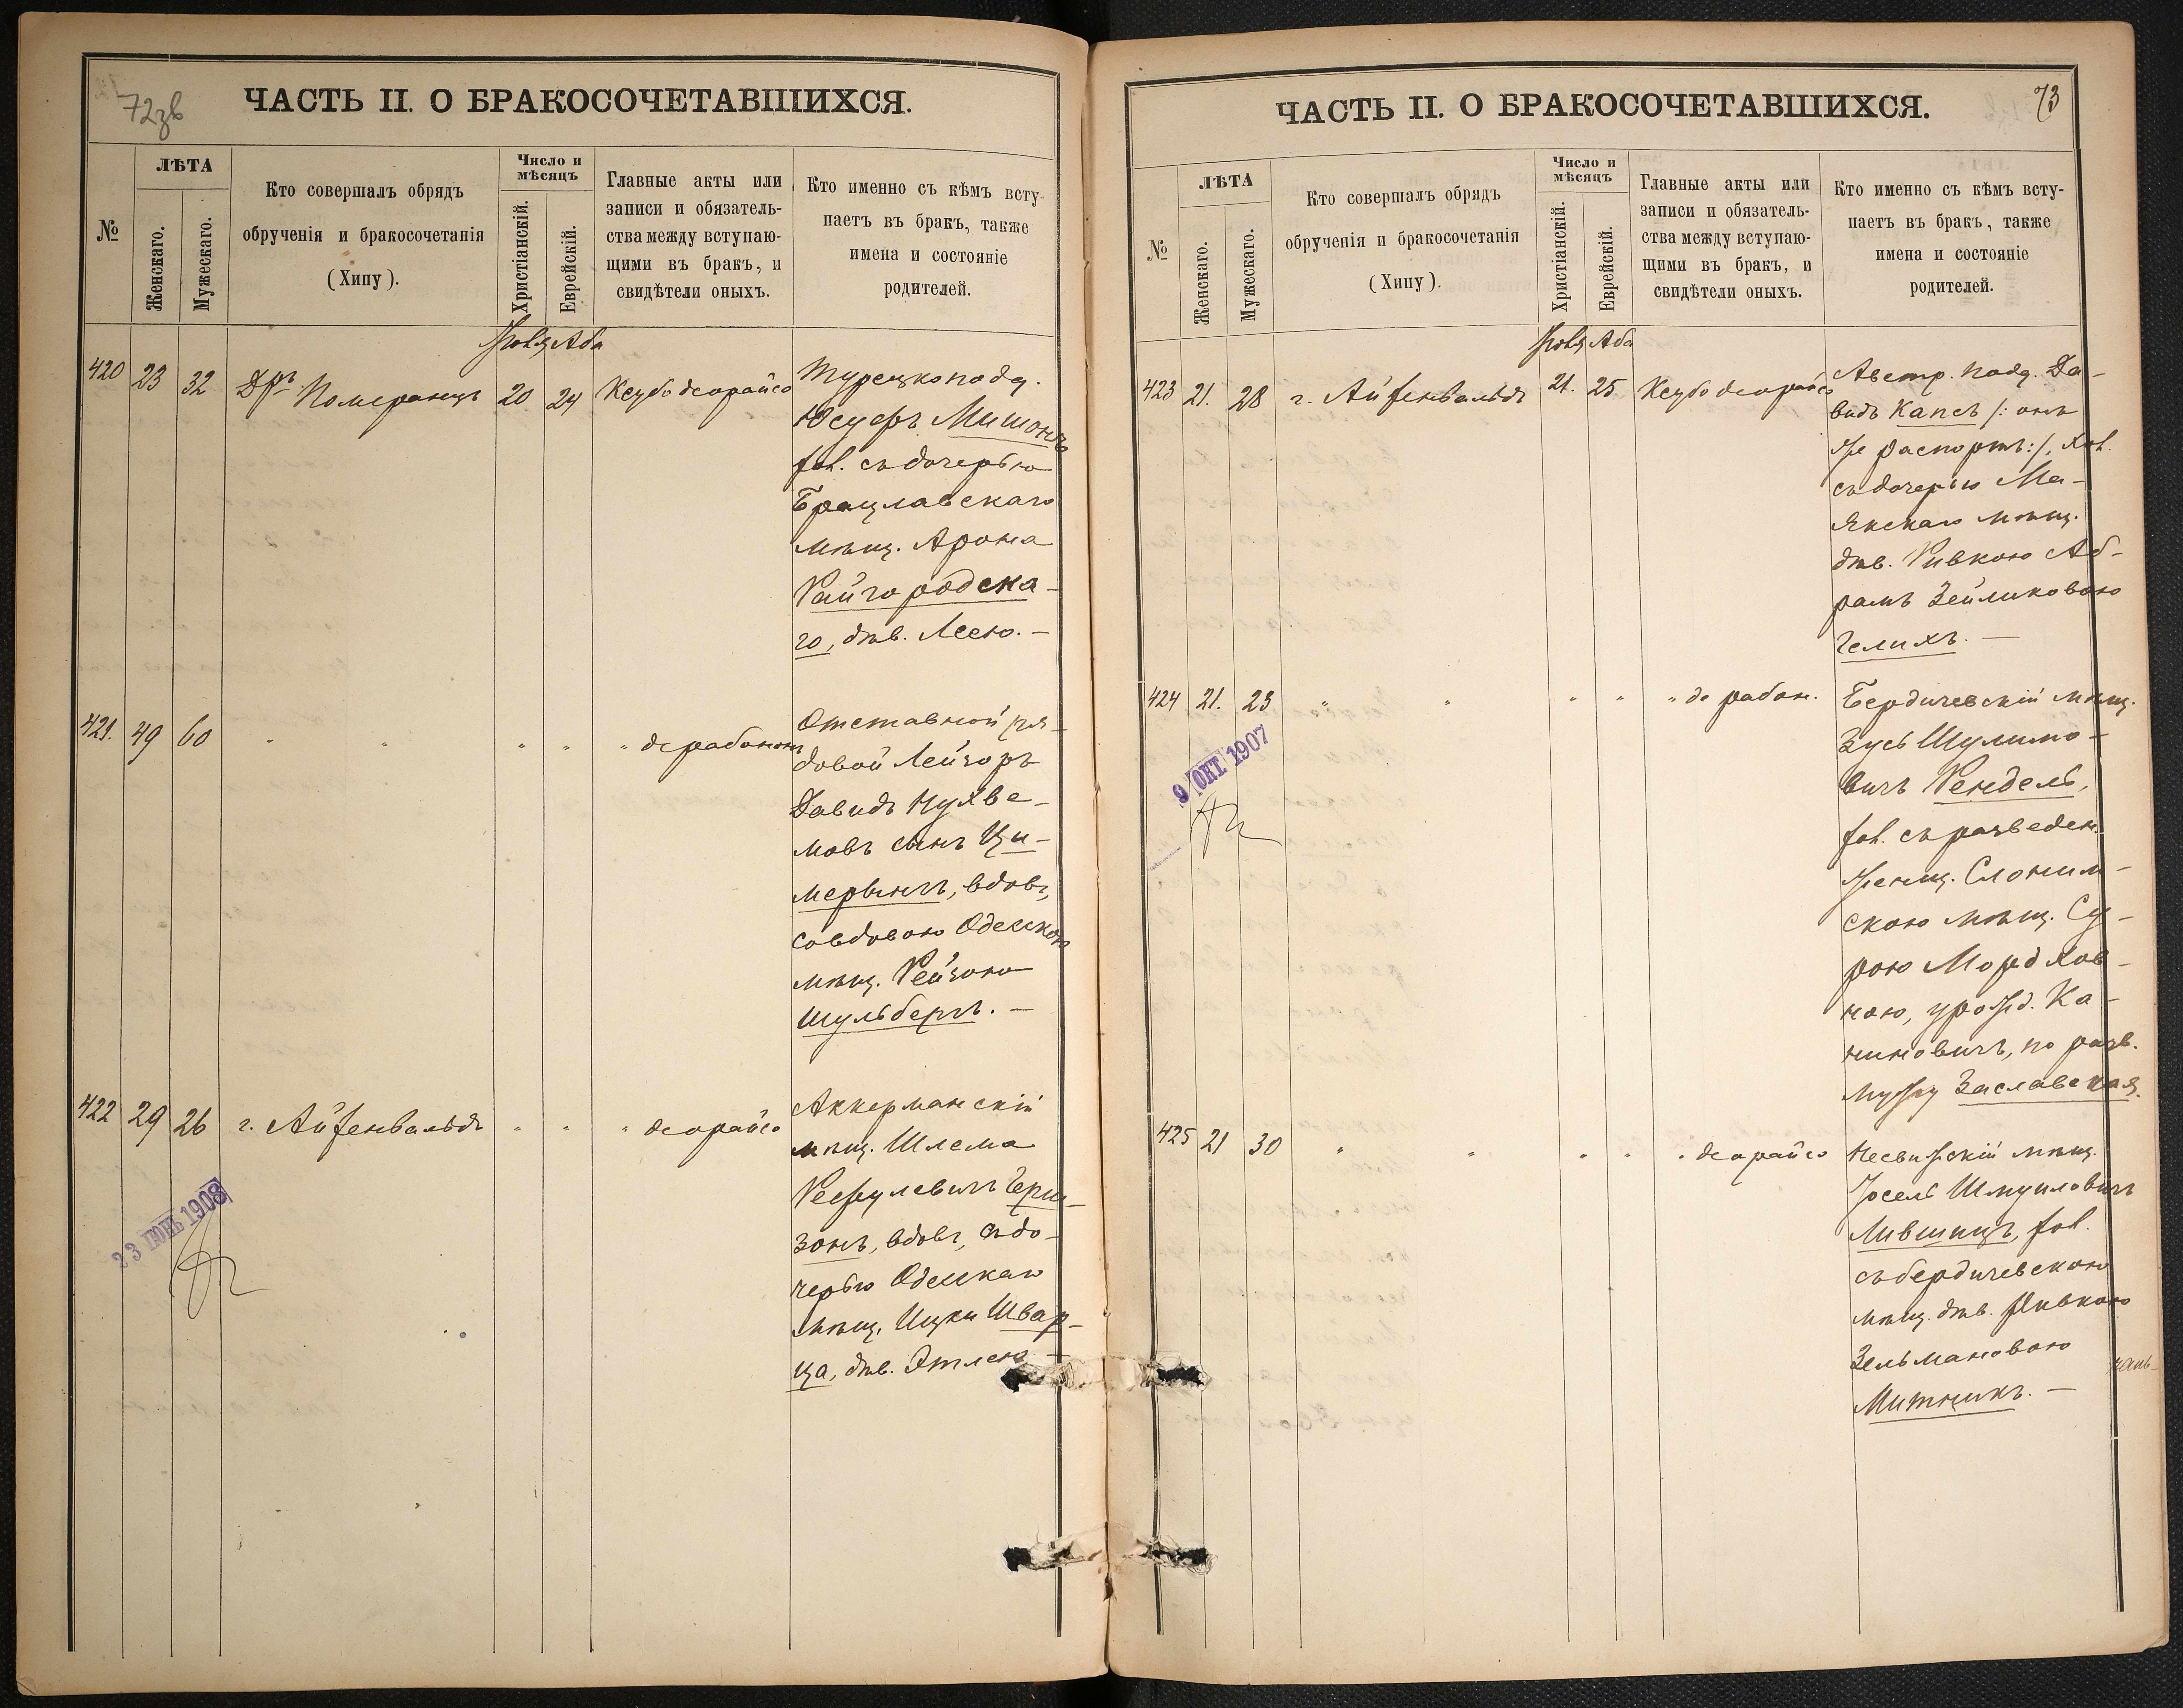 72зв
ЧАСТЬ II. О БРАКОСОЧЕТАВШИХСЯ.
№
ЛѢТА
Женскаго.
Мужескаго.
Кто совершалъ обрядъ
обрученія и бракосочетанія
(Хипу).
Число и
мѣсяцъ
Христіанскій.
Еврейскій.
Главные акты или
записи и обязатель-
ства между вступаю-
щими въ бракъ, и
свидѣтели оныхъ.
Кто именно съ кѣмъ всту-
паетъ въ бракъ, также
имена и состояніе
родителей.
Аба
420 23 32 Дръ Померанцъ 20 24 Ксубо деорайсо
Турецкоподд.
Юсуфъ Мишонъ
хол. съ дочерью
Брацлавскаго
мѣщ. Арона
Райгородска-
го, дѣв. Леею. —
421. 49 60 " " " " " дерабононъ
Отставной ря-
довой Лейзоръ
Давидъ
мовъ сынъ Ци-
мерынгъ, вдов.,
со вдовою Одесскою
мѣщ. Рейзою
Шульбергъ. —
422 29 26 г. Айзенвальдъ " " " деорайсо
Аккерманскій
мѣщ. Шлема
Герш-
зонъ, вдов., съ до-
черью Одесскаго
мѣщ. Ицки Швар-
ца, дѣв. Этлею —
23 ІЮНЬ 1908
73
ЧАСТЬ II. О БРАКОСОЧЕТАВШИХСЯ.
№
ЛѢТА
Женскаго.
Мужескаго.
Кто совершалъ обрядъ
обрученія и бракосочетанія
(Хипу).
Число и
мѣсяцъ
Христіанскій.
Еврейскій.
Главные акты или
записи и обязатель-
ства между вступаю-
щими въ бракъ, и
свидѣтели оныхъ.
Кто именно съ кѣмъ всту-
паетъ въ бракъ, также
имена и состояніе
родителей.
Аба
423 21. 28 г. Айзенвальдъ 21. 25 Ксубо деорайсо
Австр. подд. Да-
видъ Капсъ /: онъ
же Распортъ :/, хол.
съ дочерью Ма-
якскаго мѣщ.
дѣв. Ривкою Аб-
рамъ Зейликовою
Гелихъ. —
424 21. 23 " " " " " де рабон.
Бердичевскій мѣщ.
Зусь Шулимо-
вичъ Рендель,
хол. съ разведен.
женщ. Слоним-
скою мѣщ. Су-
рою Мордхов-
ною, урожд. Ка-
ниновичъ, по разв.
мужу Заславская.
9 ОКТ. 1907
425 21 30 " " " " " деорайсо
Несвижскій мѣщ.
Іосель Шмуиловичъ
Лившицъ, хол.
съ бердичевскою
мѣщ. дѣв. Ривкою
Зельмановою
Митникъ. —